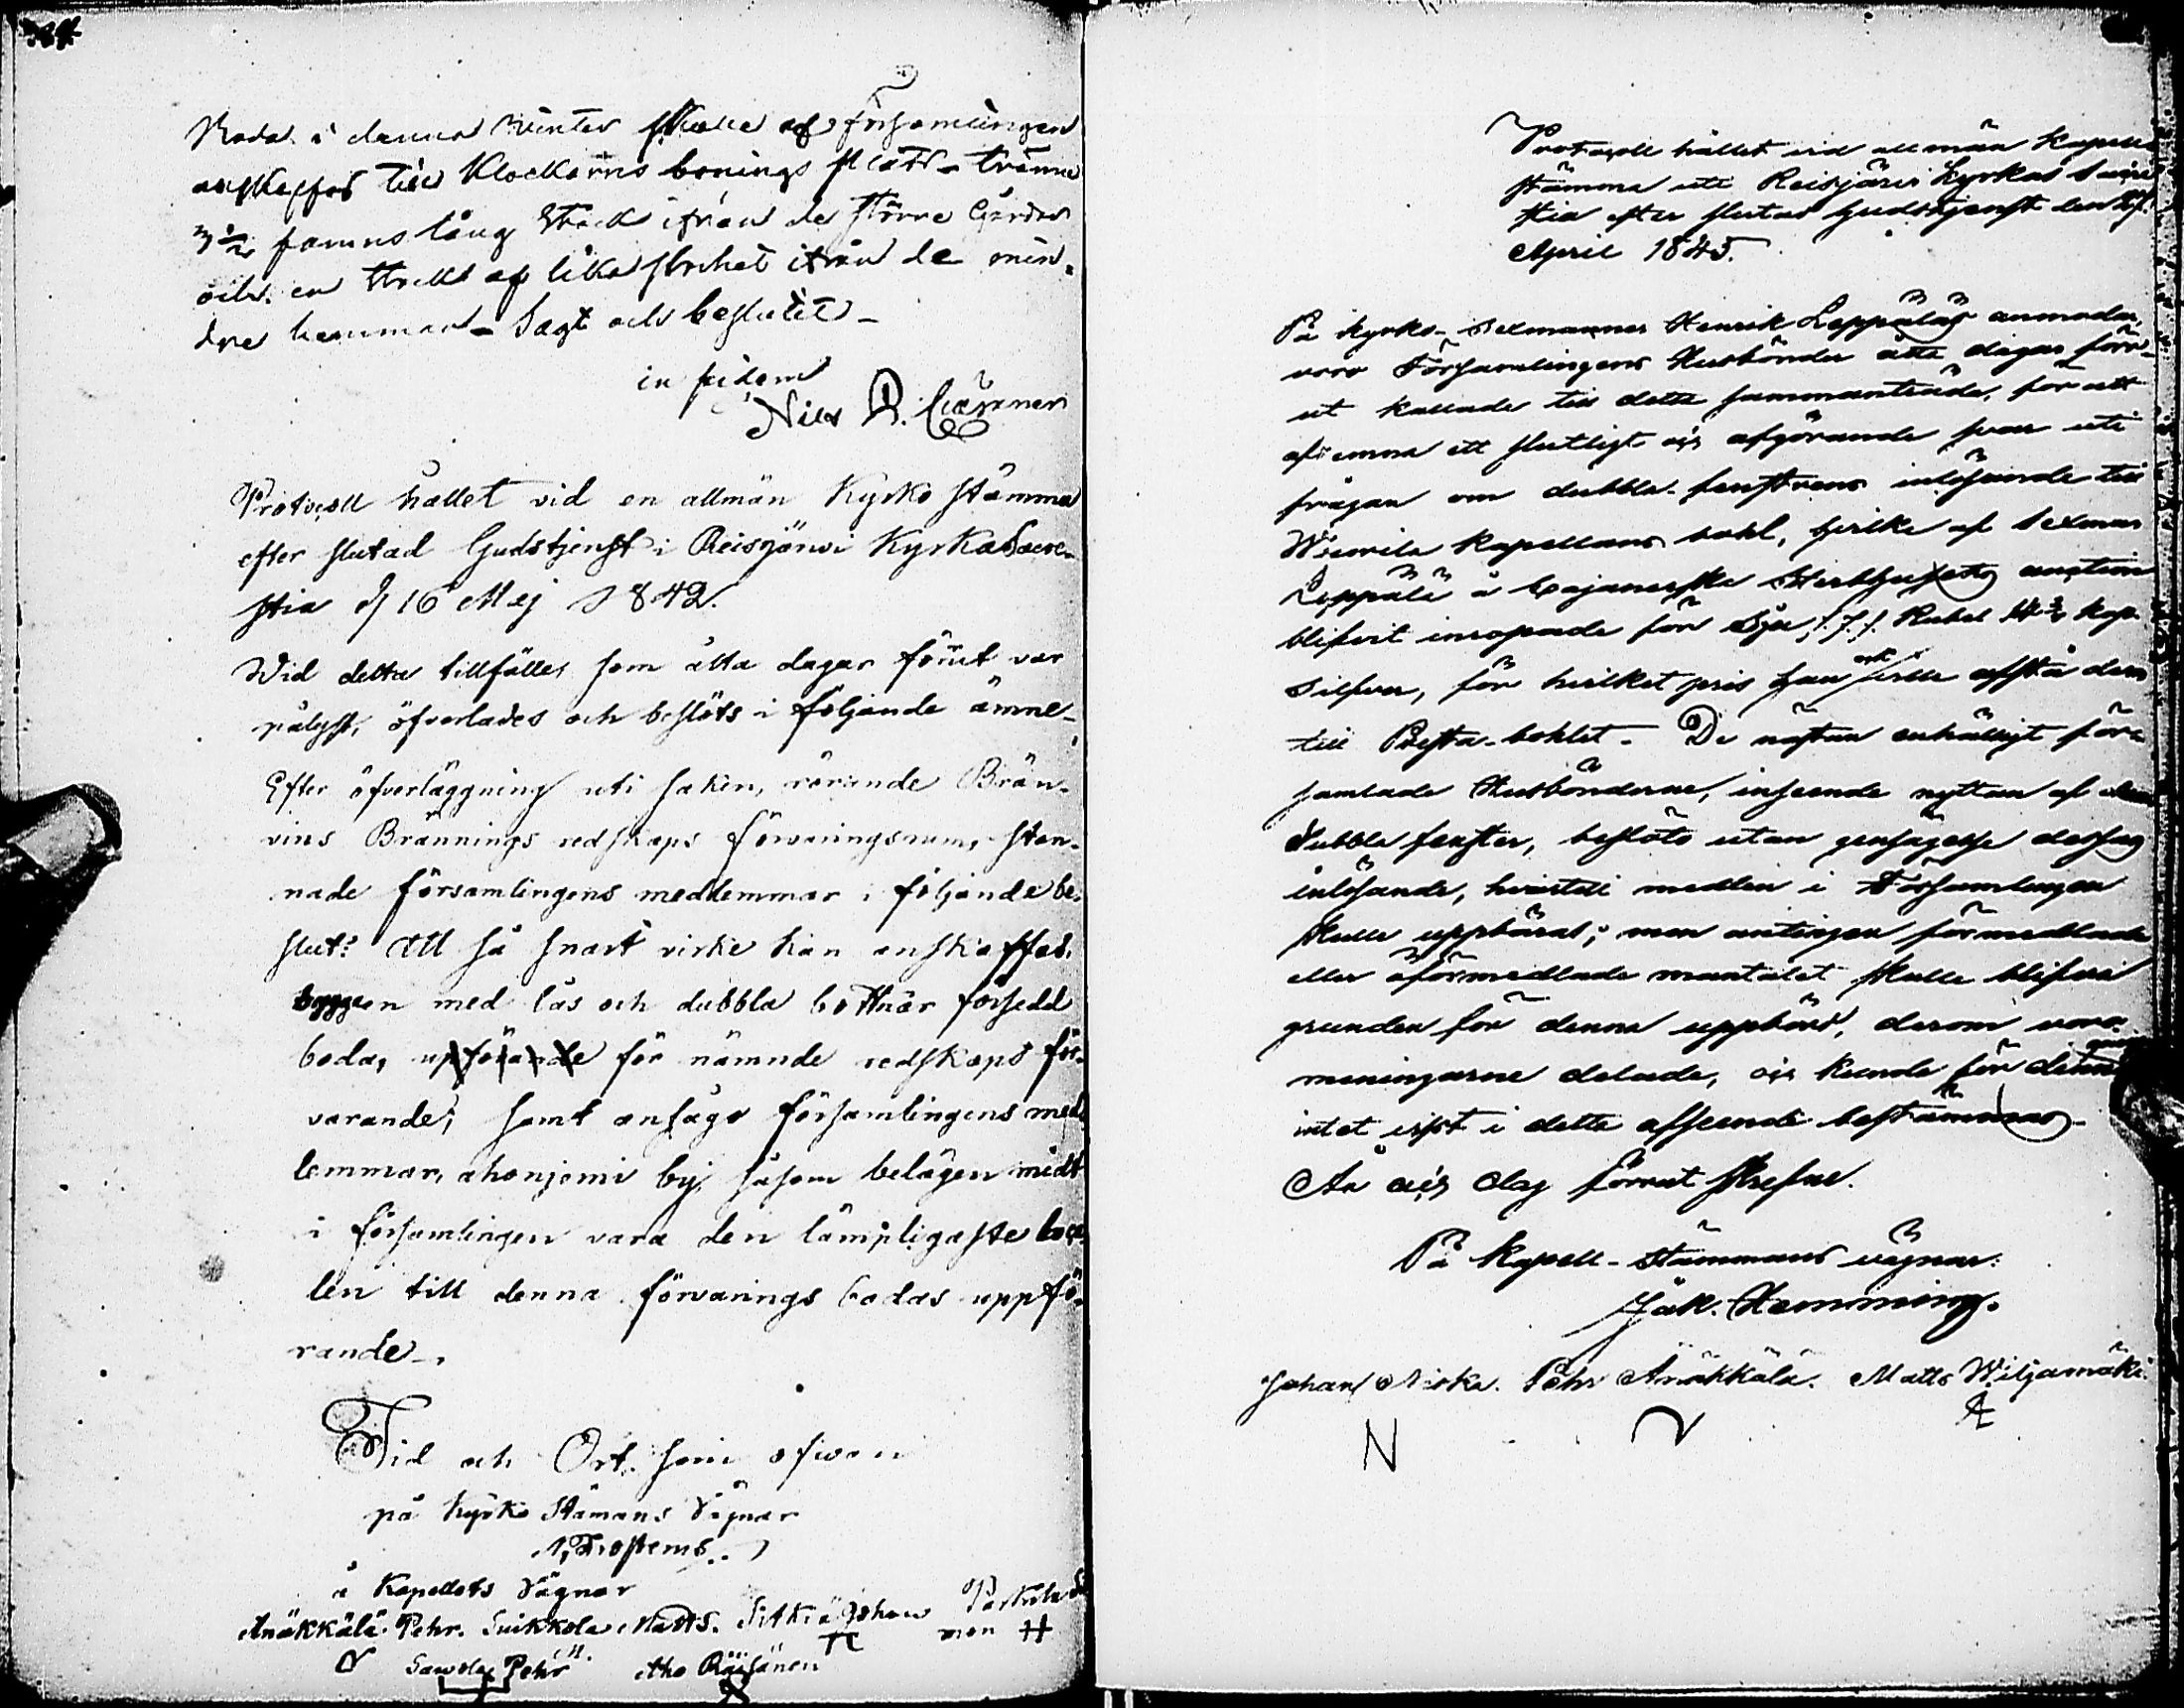 i denna Winter skulle af församlingen
anskaffas till Klockarens bonings plats - trenne
3 1/2 famns lång stock ifrån de större Gårdar
och en stock af lika storhet ifrån de min-
dre hemman - Sagt och beslutet -
in fidem
Nils
Protocoll hållet vid en allmän Kyrko stämma
efter slutad Gudstjenst i Reisjärwi Kyrkas Sacri-
stia d 16 Maj 1842.
Wid detta tillfälle, som åtta dagar förut var
pålyst, öfverlades och beslöts i följande ämne-
Efter öfverläggning uti saken, rörande Brän-
vins Brännings redskaps förvaringsrum, stan-
nade församlingens medlemmar i följande be-
slut: Att så snart virke kan anskaffas,
bygges en med lås och dubbla bottnar försedd
boda, uppförande för nämnde redskaps för-
varande; samt ansågo församlingens med-
lemmar, ahonjemi by, såsom belägen midt
i församlingen vara den lämpligaste loca-
len till denna förvarings bodas uppfö-
rande -.
Tid och Ort som ofwan
på Kyrko Stämans Vägnar
å Kapellets Vägnar
Anäkkälä Pehr. Suikkola Matts. Johan
Pehr Aho Räisänen
Protocoll hållet vid allmän Kapell
stämma uti Reisjärvi Kyrkas Sacri
stia efter slutad Gudstjenst den
April 1845.
På kyrko-sexmannen Henrik Leppäläs anmodan,
voro Församlingens Husbönder åtta dagar förr-
ut kallade till detta sammanträde, för att
afgemna ett slutligt och afgörande svar uti
frågan om dubbla-fenstrens inlösande till
kapellans bohl, hvilka af Sexman
Leppälä å Cajanerska Sterbhusets auction
blifvit inropade för Sju /.7./. Rubel kop.
Silfver, för hvilket pris han ock ville afstå dem
till Presta-bohlet. De nästan enhälligt för-
samlade Husbönderne, inseende nyttan af
dubbla fenster, beslöto utan gensägelse dessas
inlösande, hvartill medlen i Församlingen
skulle uppbäras; men antingen förmedlade
eller oförmedlade mantalet skulle blifva
grunden för denna uppbörd, derom voro
meningarne delade, och kunde för denna
intet vist i detta afseende bestämmas.
År och dag förrut skrefne.
På Kapell-stämmans vägnar:
Jak. Hemming.
Johan Niska. Pehr Anäkkälä. Matts Wiljamäki.